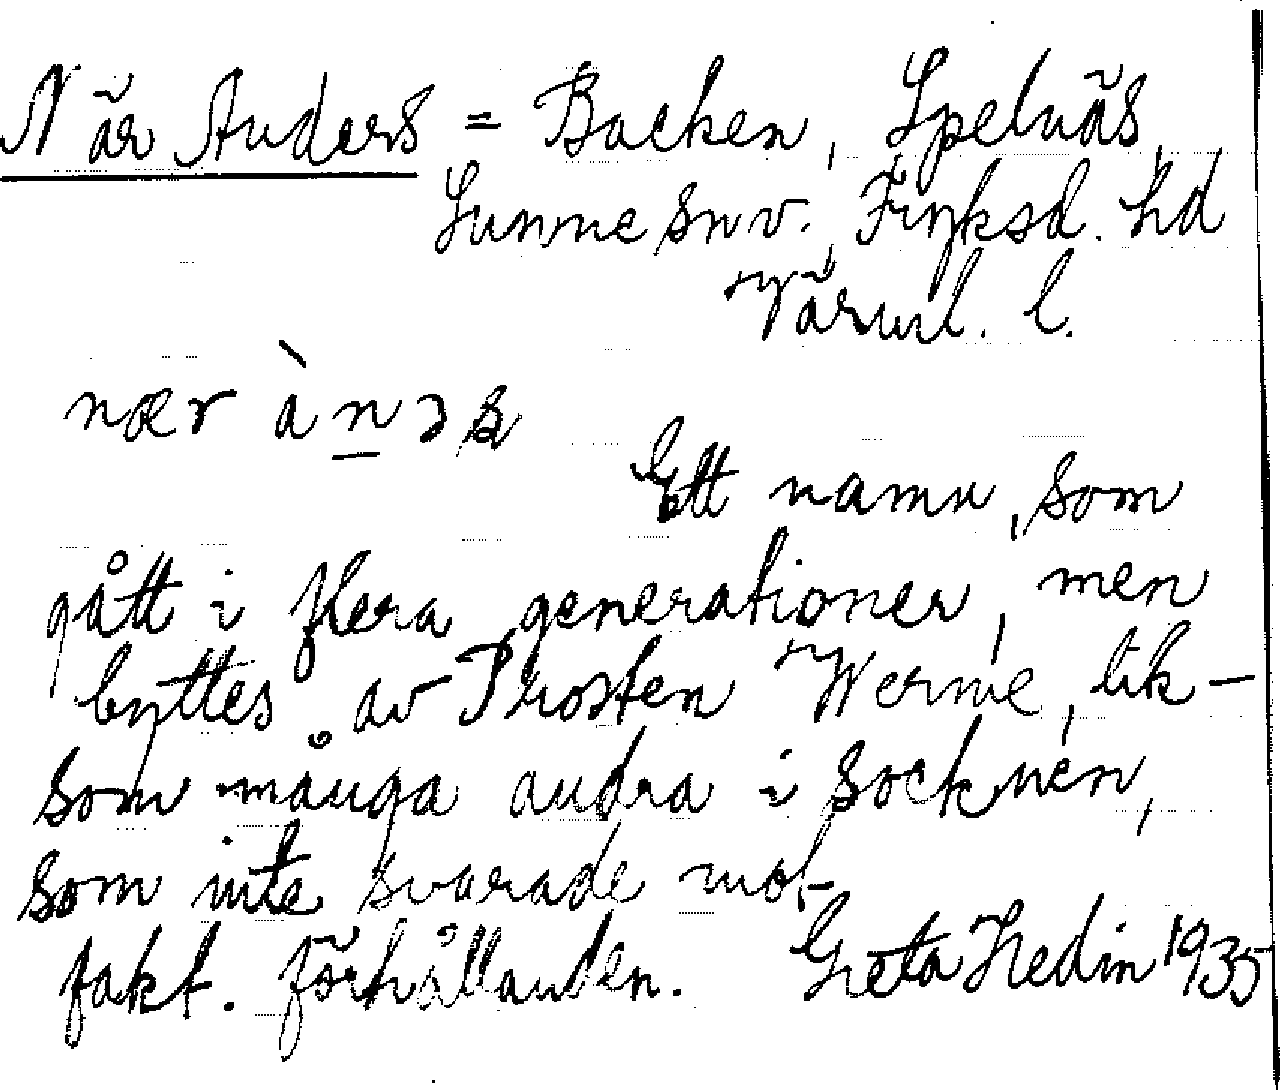 När Anders = Backen, Spelnäs,
Sunne snv. Fryksd. hd
Värml. l.
nær ànəs
Ett namn, som
gått i flera generationer, men
byttes av Prosten Werme, lik-
som många andra i socknen,
som inte svarade mot
fakt. förhållanden. Greta Hedin 1935